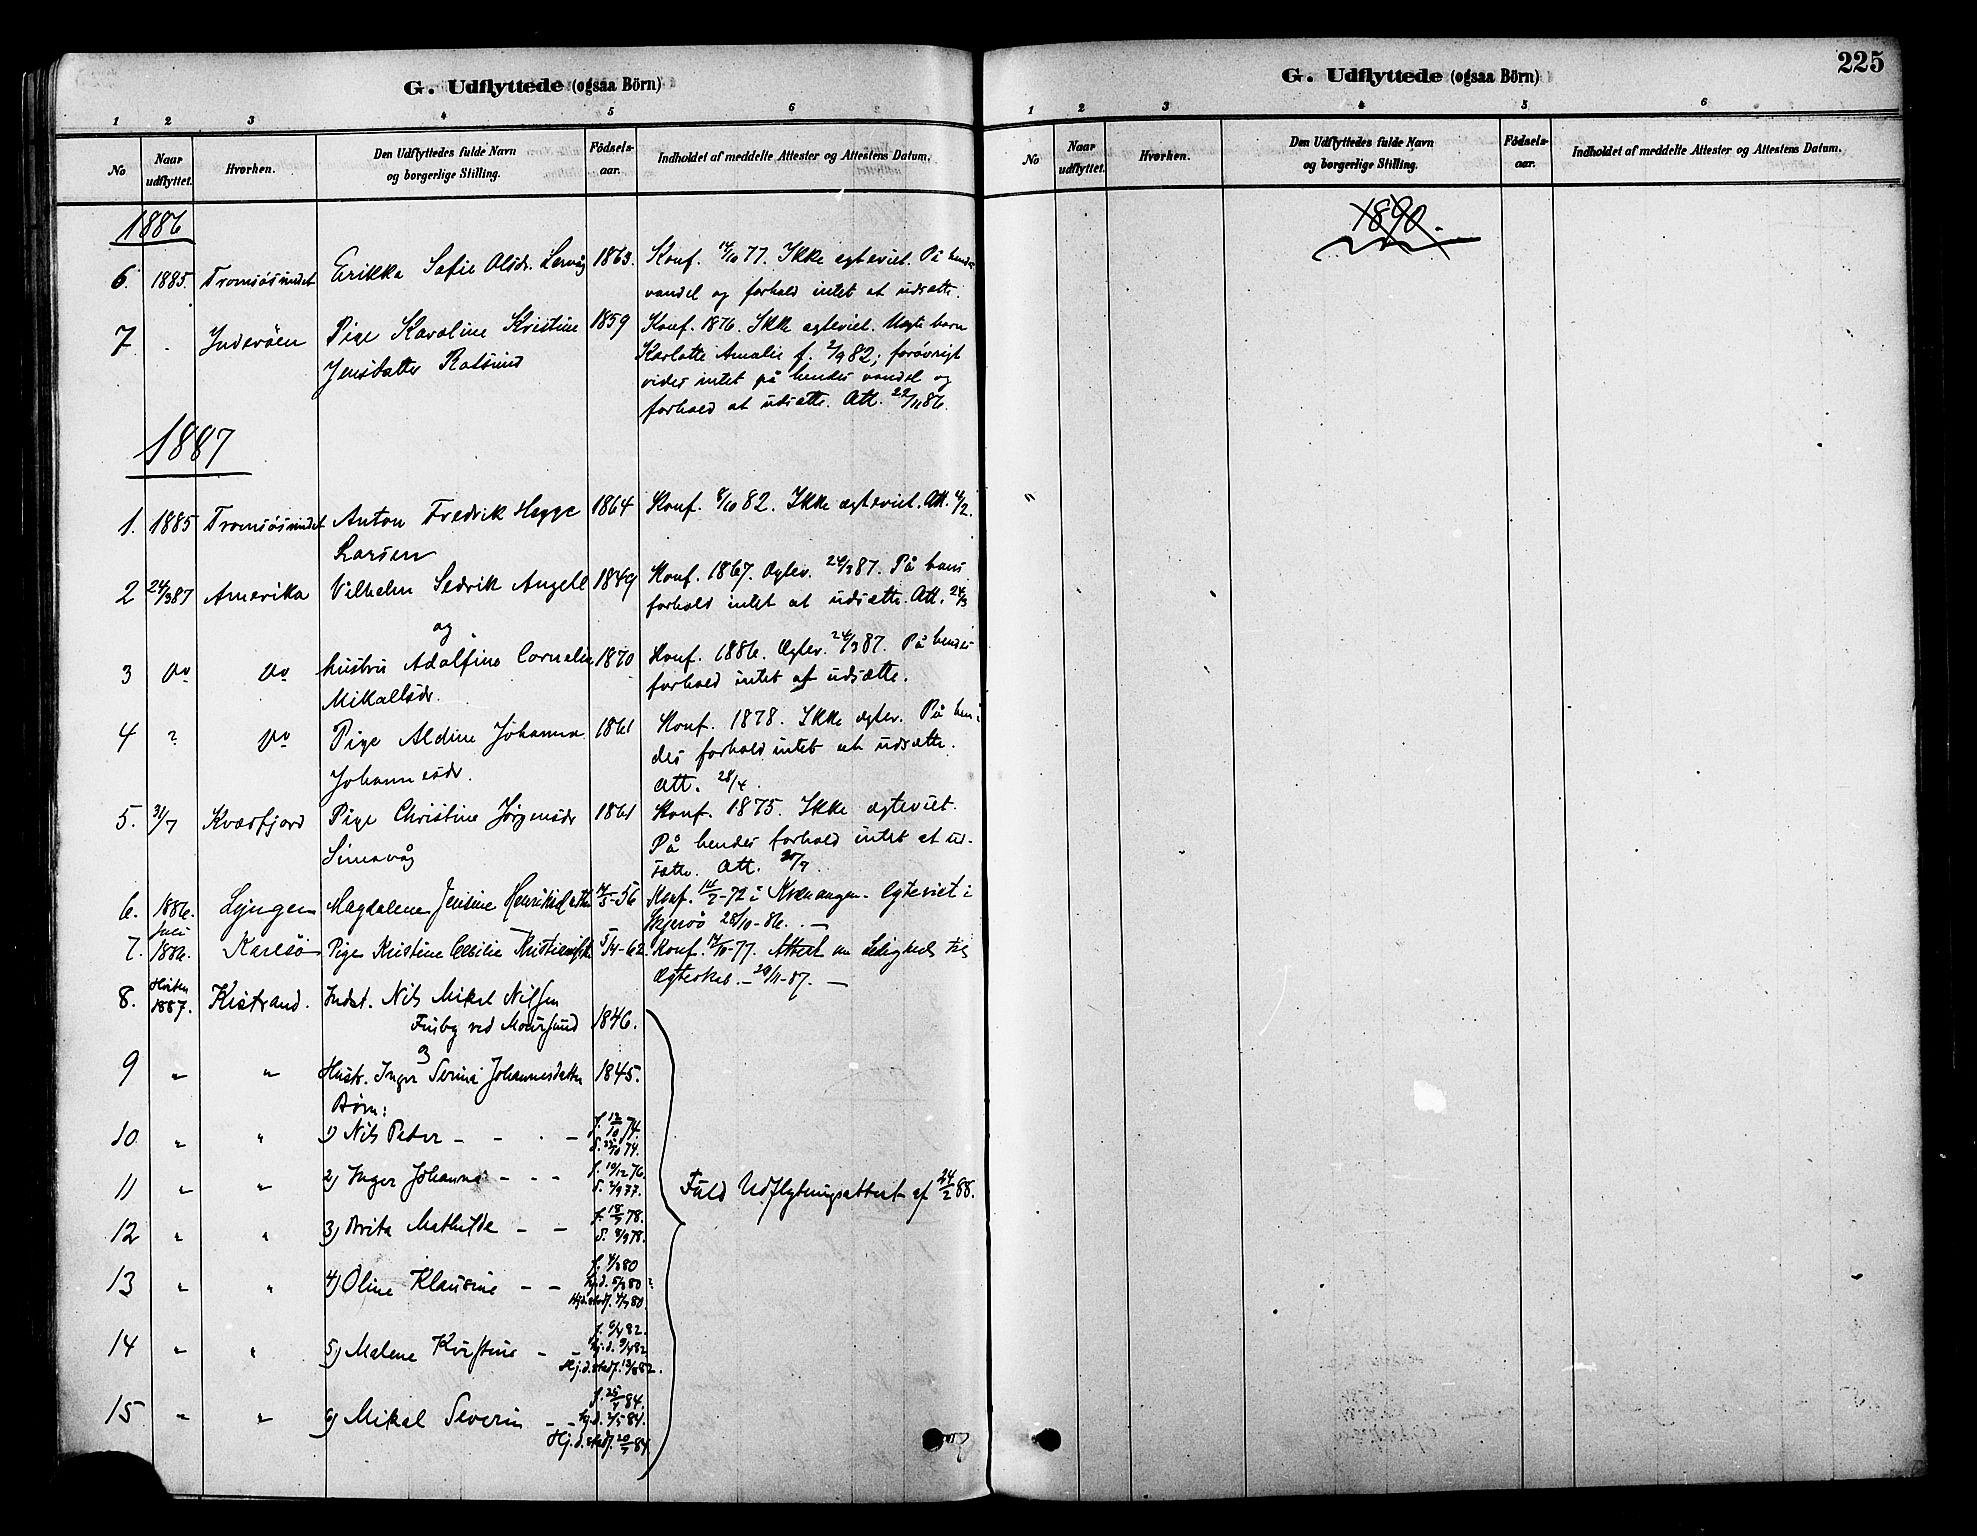 G. Udflyttede (ogsaa Börn)
1 2 3 4 5 6
No
Naar udflyttet.
Hvorhen.
Den Udflyttedes fulde Navn
og borgerlige Stilling.
Födsels-
aar.
Indholdet af meddelte Attester og Attestens Datum.
1886
6. 1885. Tromsösundet Erikka Sofie Olsdr. Lervåg 1863. Konf. 14/10 77. Ikke egteviet. På hendes
vandel og forhold intet at udsætte.
7 Inderöen Pige Karoline Kristine 1859 Konf. 1876. Ikke egteviet. Uegte barn
Jensdatter Rotsund Karlotte Amalie f. 2/9 82; forövrigt
vides intet på hendes vandel og
forhold at udsætte. Att. 22/11 86.
1887
1. 1885 Tromsösundet Anton Fredrik Hegge 1864 Konf. 8/10 82. Ikke ægteviet. Att. 4/2.
Larsen
2 24/3 87 Amerika Vilhelm Sedrik Angell 1849 Konf. 1867. Ægtev. 24/3 87. På hans
forhold intet at udsætte. Att. 24/3
og
3 Do Do hustru Adolfine Cornelia 1870 Konf. 1886. Ægtev. 24/3 87. På hendes
Mikallsdr. forhold intet at udsætte.
4 ? Do Pige Aldine Johanna 1861 Konf. 1878. Ikke ægtev. På hen-
Johannesdr. des forhold intet at udsætte.
Att. 28/4.
5. 31/7 Kvæfjord Pige Christine Jörgensdr 1861 Konf. 1875. Ikke ægteviet.
Simavåg På hendes forhold intet at ud-
sætte. Att. 30/7.
6. 1886. Lyngen Magdalene Jensine Henriksdatter 7/5-56 Konf. 14/7-72 i Kvænangen. Egteviet i
Skjervö 28/10-86. —
7. Juli 1886. Karlsö Pige Kristine Cecilie Kristiansdtr 5/4-62 Konf. 14/10-77. Attest om Ledighed til
Ægteskab. – 29/11-87. —
8. Hösten 1887. Kistrand. Indst. Nils Mikal Nilsen
Fusby ved Maursund 1846.
9 " " Hustr. Inger Serina Johannesdatter 1845.
Börn:
10 " " 1) Nils Peder – – – f. 12/10 74.
11 " " 2) Inger Johanna – – – f. 10/12 76.
D. 2/9 77.
Fuld Udflytningsattest af 24/2 88.
12 " " 3) Brita Mathilde – – f. 18/7 78.
D. 8/9 78.
13 " " 4) Oline Klausine – – f. 4/3 80
hjd. 5/3 80
Hj.d. stadf. 4/7 80.
14 " " 5) Malene Kristine – – f. 6/4 82.
Hj.d. 9/4 82
Hj.d. stadf. 13/8 82.
15 " " 6) Mikal Severin – – f. 25/4 84.
hj.d. 2/5 84.
Hj.d. stadf. 20/7 84
G. Udflyttede (ogsaa Börn)
225
1 2 3 4 5 6
No
Naar
udflyttet.
Hvorhen.
Den Udflyttedes fulde Navn
og borgerlige Stilling.
Födsels-
aar.
Indholdet af meddelte Attester og Attestens Datum.
1890.